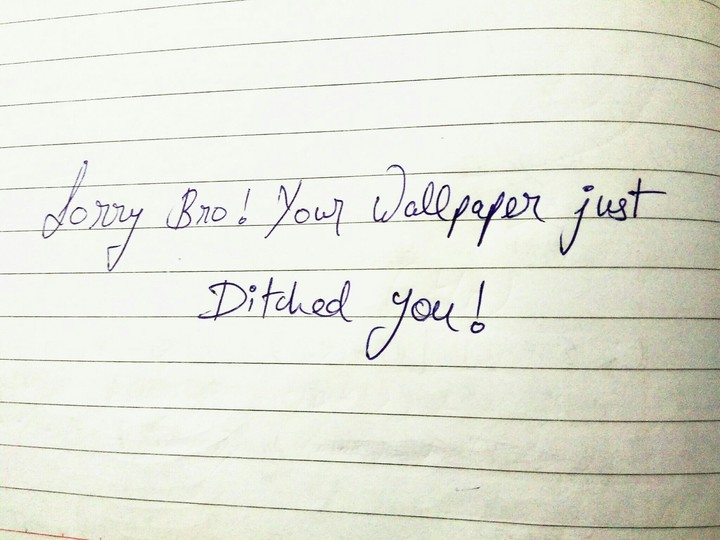 Sorry Bro! Your Wallpaper just
Ditched you!